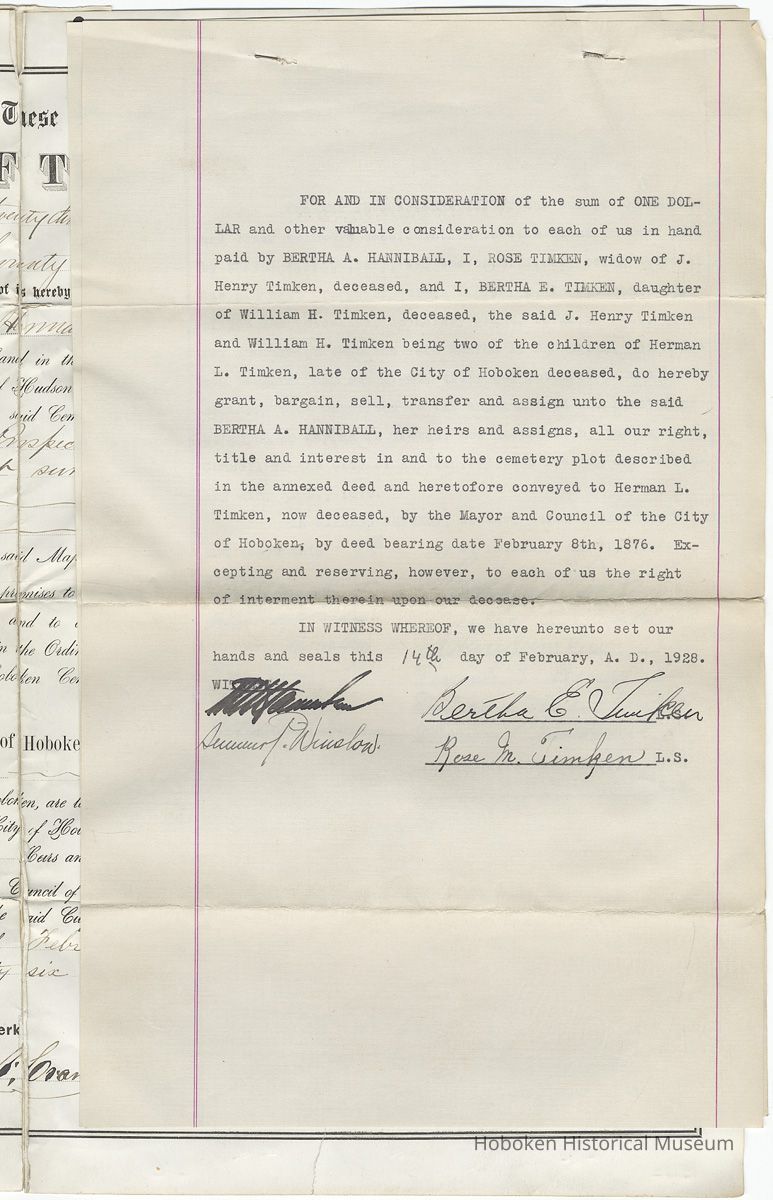 These
F T
of is hereby
and in the
f Hudson
said Cem
said Map
premises to
and to
in the Ordin
oboken Cem
of Hoboken
oboken, are
City of Hob
Heirs an
Council of
said Ci
Febr
six
erk
FOR AND IN CONSIDERATION of the sum of ONE DOL-
LAR and other valuable consideration to each of us in hand
paid by BERTHA A. HANNIBALL, I, ROSE TIMKEN, widow of J.
Henry Timken, deceased, and I, BERTHA E. TIMKEN, daughter
of William H. Timken, deceased, the said J. Henry Timken
and William H. Timken being two of the children of Herman
L. Timken, late of the City of Hoboken deceased, do hereby
grant, bargain, sell, transfer and assign unto the said
BERTHA A. HANNIBALL, her heirs and assigns, all our right,
title and interest in and to the cemetery plot described
in the annexed deed and heretofore conveyed to Herman L.
Timken, now deceased, by the Mayor and Council of the City
of Hoboken, by deed bearing date February 8th, 1876. Ex-
cepting and reserving, however, to each of us the right
of interment therein upon our decease.
IN WITNESS WHEREOF, we have hereunto set our
hands and seals this 14th day of February, A. D., 1928.
Bertha E. Timken
Winslow.
Rose M. Timken L.S.
Hoboken Historical Museum